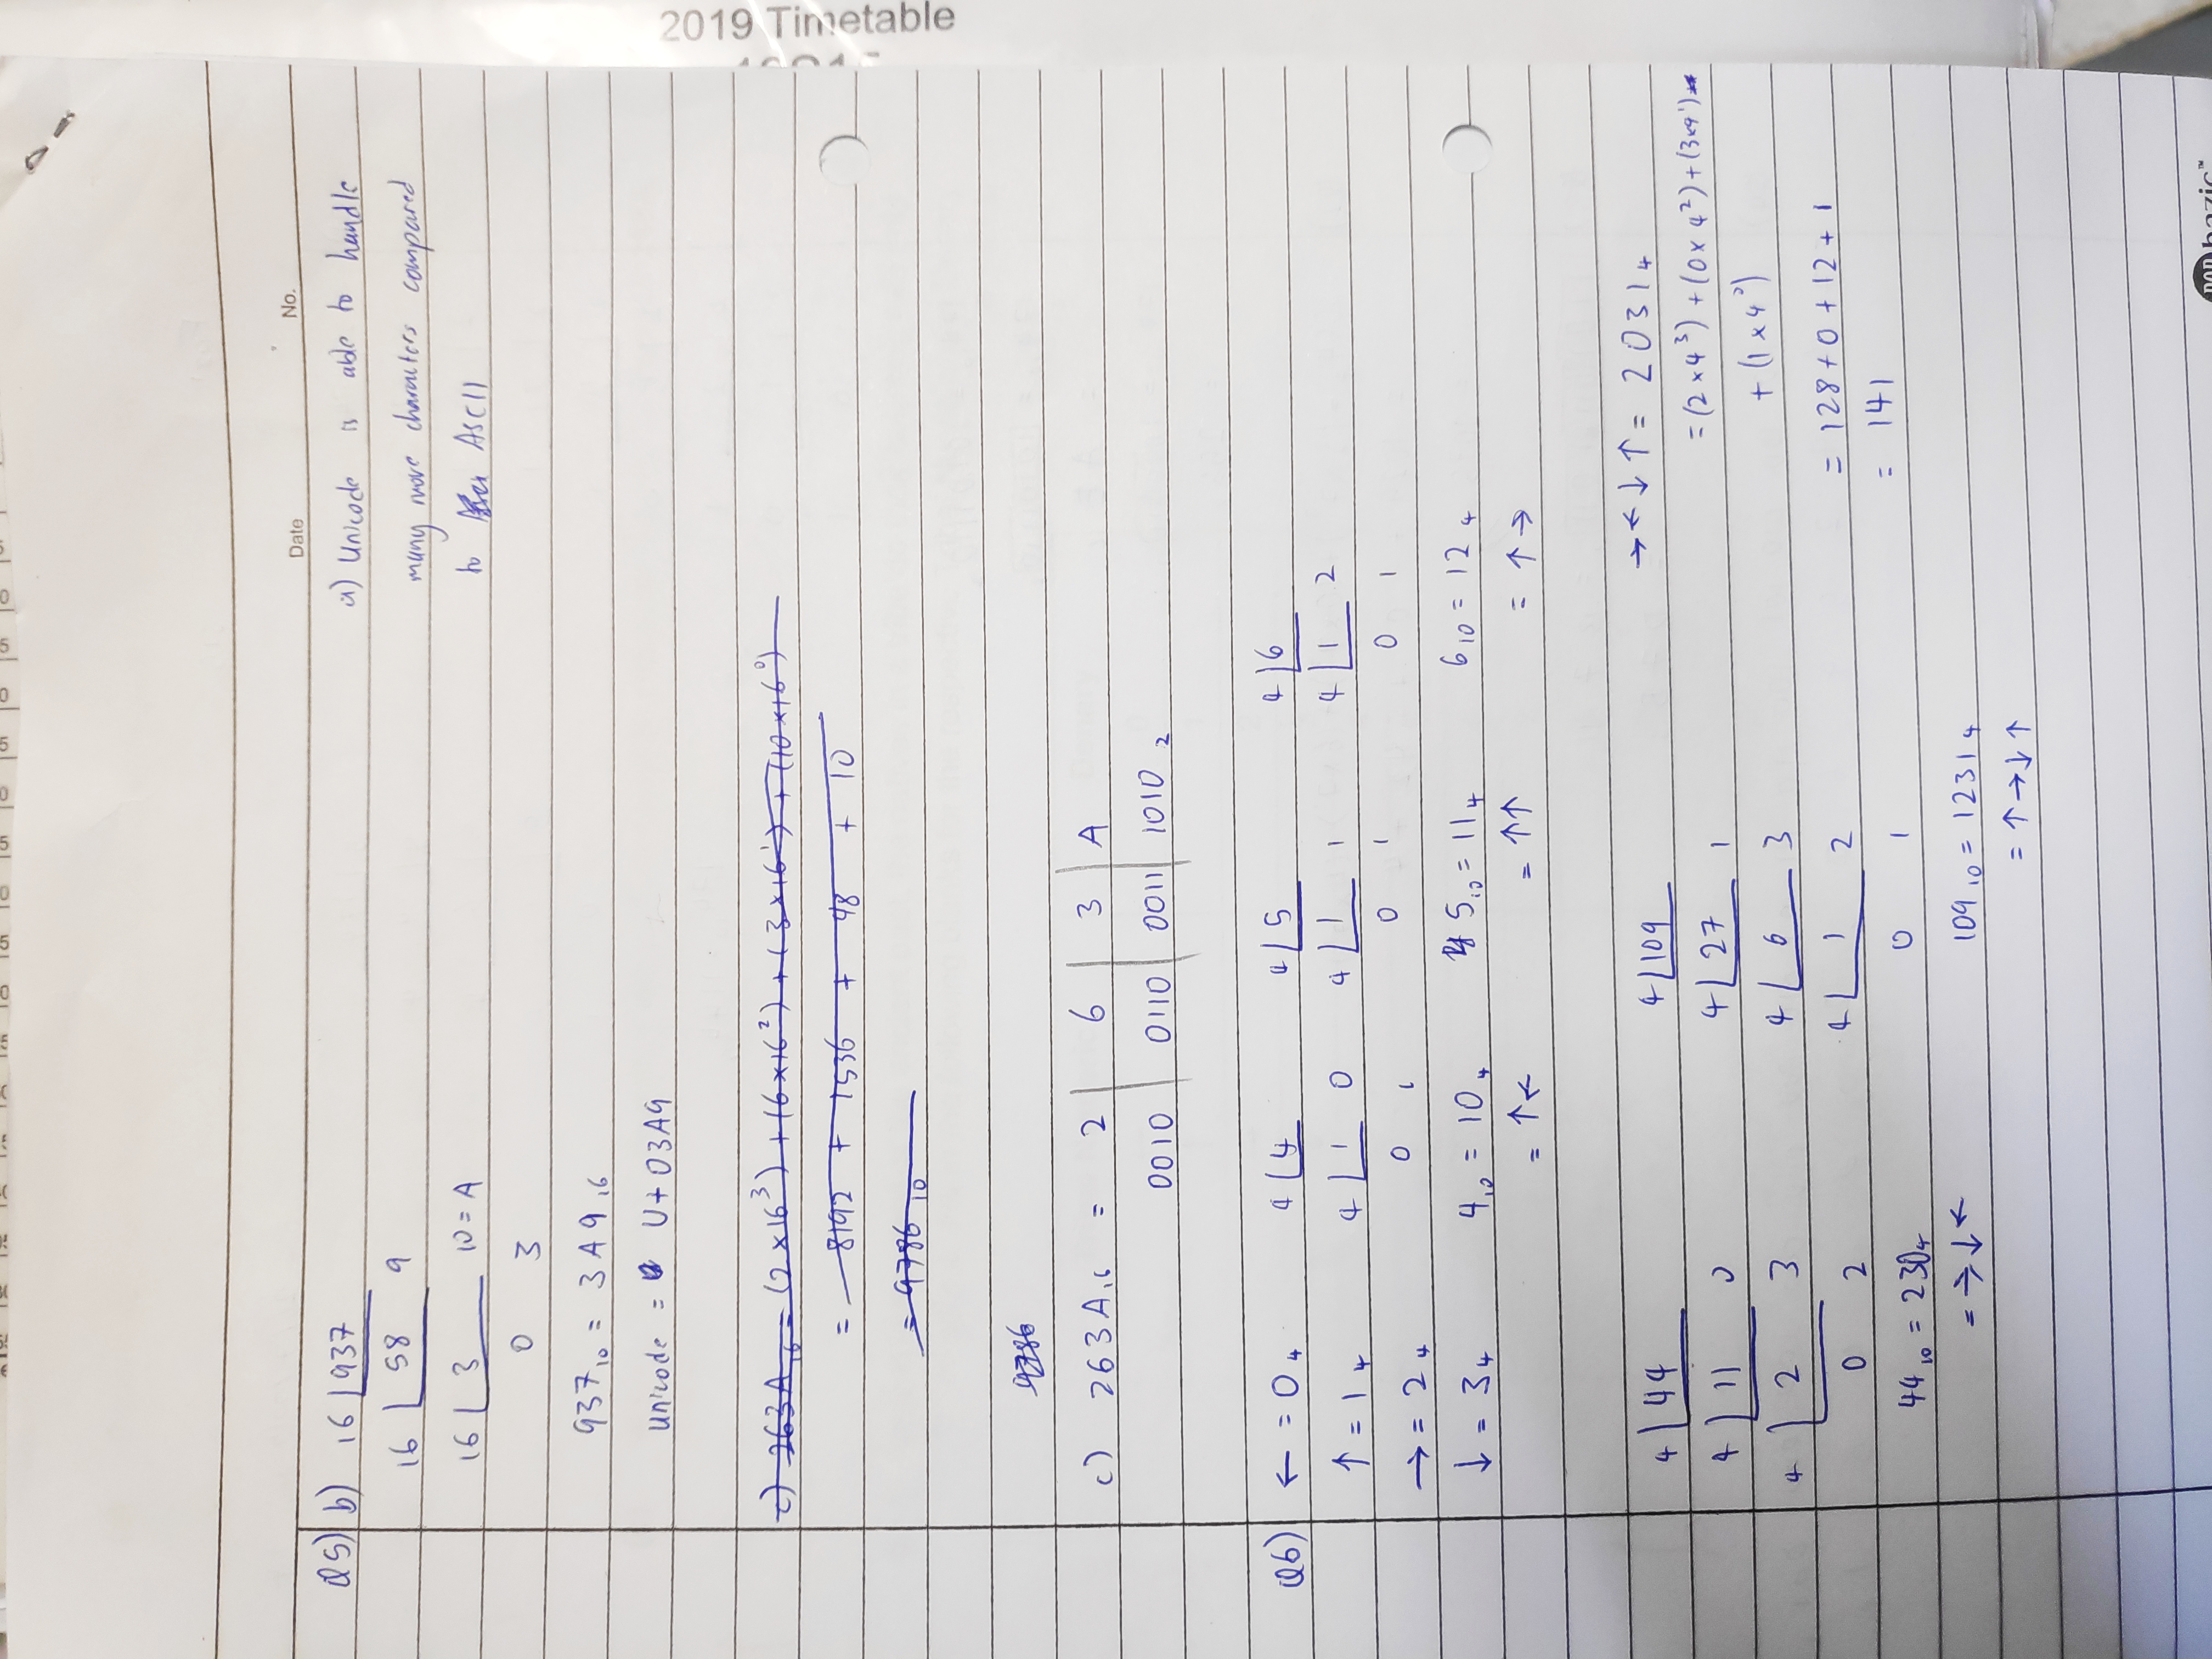 Date No.
Q5) b) 16 937
16 58 9
16 3 10 = A
0 3
937₁₀ = 3A9₁₆
Unicode = U+03A9
a) Unicode is able to handle
many more characters compared
to ASCII
c) 263A₁₆ = (2×16³) + (6×16²) + (3×16¹) + (10×16⁰)
= 8192 + 1536 + 48 + 10
= 9786₁₀
9786
c) 263A₁₆ = 2 6 3 A
0010 0110 0011 1010₂
Q6) ← = 0₄
↑ = 1₄
→ = 2₄
↓ = 3₄
4 4
4 1 0
0 1
4₁₀ = 10₄
= ↑←
4 5
4 1 1
0 1
5₁₀ = 11₄
= ↑↑
4 6
4 1 2
0 1
6₁₀ = 12₄
= ↑→
4 44
4 11 0
4 2 3
0 2
44₁₀ = 230₄
= →↓←
4 109
4 27 1
4 6 3
4 1 2
0 1
109₁₀ = 1231₄
= ↑→↓↑
→←↓↑ = 2031₄
= (2×4³) + (0×4²) + (3×4¹)
+ (1×4⁰)
= 128 + 0 + 12 + 1
= 141
2019 Timetable
bazic™